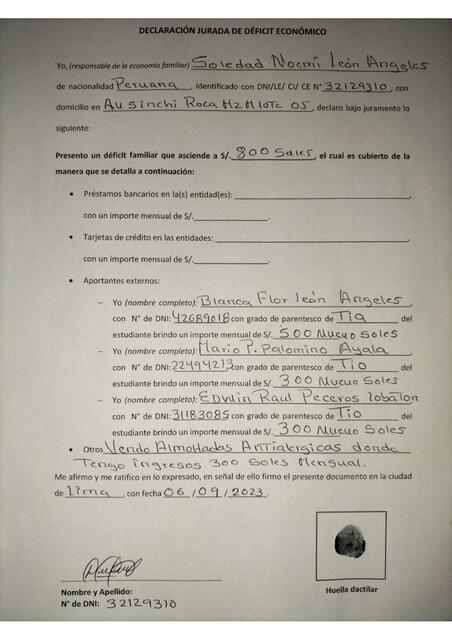 DECLARACIÓN JURADA DE DÉFICIT ECONÓMICO
Yo, (responsable de la economía familiar) Soledad Noemí León Angeles
de nacionalidad Peruana, identificado con DNI/LE/ CI/ CE N° 32129310, con
domicilio en Ausinchi Roca Mz M lote 05, declaro bajo juramento lo
siguiente:
Presento un déficit familiar que asciende a S/. 800 Soles, el cual es cubierto de la
manera que se detalla a continuación:
• Préstamos bancarios en la(s) entidad(es):
con un importe mensual de S/.
• Tarjetas de crédito en las entidades:
con un importe mensual de S/.
• Aportantes externos:
– Yo (nombre completo): Blanca Flor león Angeles
con N° de DNI: 42689018 con grado de parentesco de Tia del
estudiante brindo un importe mensual de S/. 500 Nuevo Soles
– Yo (nombre completo): Mario P. Palomino Ayala
con N° de DNI: 22494213 con grado de parentesco de Tio del
estudiante brindo un importe mensual de S/. 300 Nuevo Soles
– Yo (nombre completo): Edwin Raul Peceros lobaton
con N° de DNI: 31183085 con grado de parentesco de Tio del
estudiante brindo un importe mensual de S/. 300 Nuevo Soles
• Otros Vendo Almohadas Antialergicas donde
Tengo ingresos 300 Soles Mensual.
Me afirmo y me ratifico en lo expresado, en señal de ello firmo el presente documento en la ciudad
de lima, con fecha 06/09/2023
Nombre y Apellido:
N° de DNI: 32129310
Huella dactilar